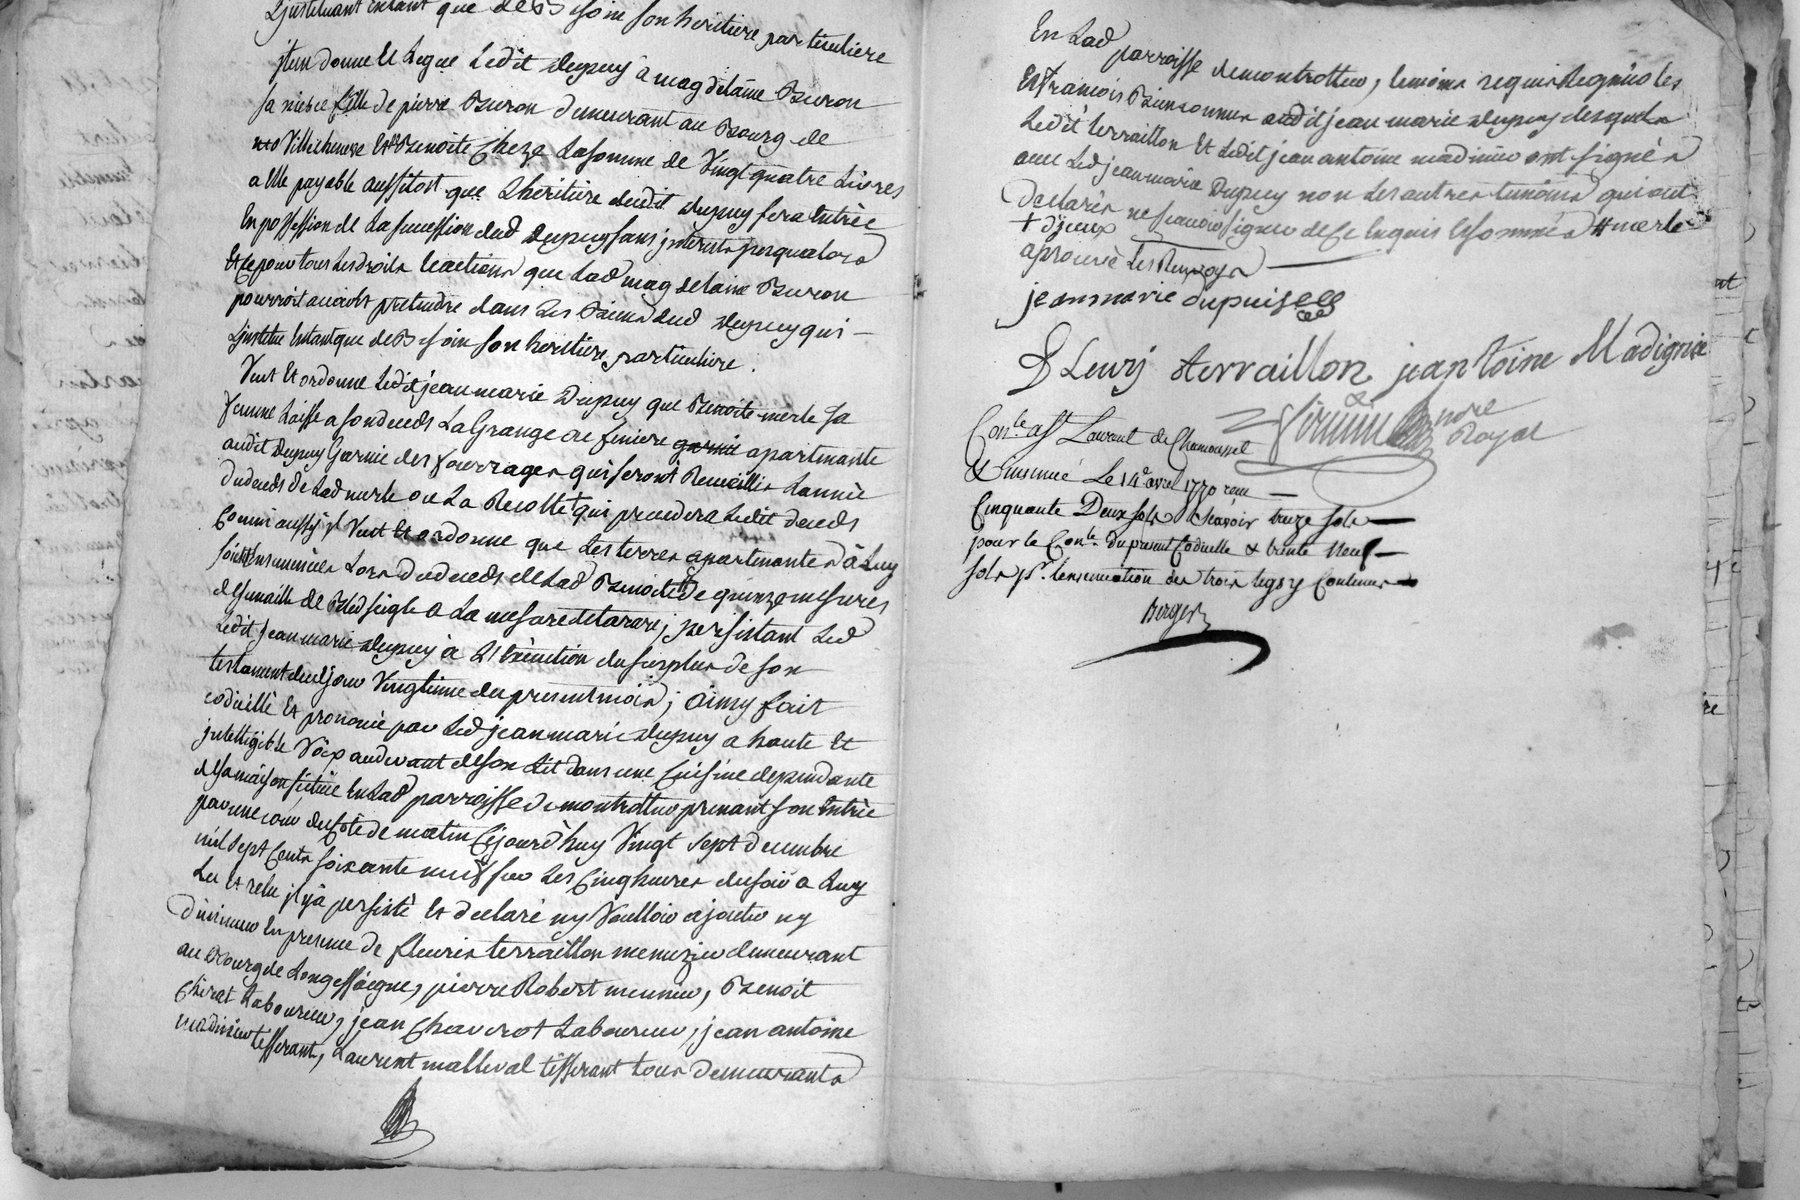 L'instituant entant que de Besoin son heritiere particuliere
jtem donne et Legue Ledit Dupuy à magdelaine Buron
sa niesce fille de pierre Buron demeurant au Bourg de
Villecheneve Et de Benoite Cheze La somme de Vingt quatre Livres
a Elle payable aussitost que L'heritiere dudit Dupuy sera Entrée
En possession de La succession dud Dupuy sans jnterests jusqu'alors
Et ce pour tous Les droits Et actions que Lad magdelaine Buron
pourroit avoir et pretendre dans Les Biens dud Dupuy qui —
L'institue Entant que de Besoin son heritiere particuliere.
Veut Et ordonne Ledit jean marie Dupuy que Benoite merle sa
femme Laisse a son deceds La Grange ou feniere garnie apartenante
audit Dupuy Garnie des fourrages qui seront Recueillis L'année
du deceds de Lad merle ou La Recolte + qui precedera Ledit deceds
Comm'aussy jl Veut Et ordonne que Les terres apartenantes à Luy
soint Ensemencées Lors du deceds de Lad Benoite # de quinze mesures
de semaille de Bled seigle a La mesure de tarare; persistant Led
Ledit jean marie Dupuy à L'Execution du surplus de son
testament dud jour Vingtieme du present mois; ainsy fait
codicillé Et prononcé par Led jean marie Dupuy a haute Et
jntelligible Voix au devant de son Lit dans une Cuisine dependante
de sa maison située En Lad parroisse de montrottier prenant son Entrée
par une cour du Coté de matin Cejourd'huy Vingt sept decembre
mil sept Cents soixante neuf sur Les Cinq heures du soir a Luy
Lu Et relu jl y à persisté Et declaré ny Voulloir ajouter ny
diminuer En presence de fleury terraillon menuzier demeurant
au Bourg de Longessaigne, pierre Robert meunier, Benoit
Laboureur, jean Chavrot Laboureur, jean antoine
madinier tisserant, Laurent malleval tisserant tous demeurants
En Lad
parroisse de montrottier, temoins requis
Et francois audit jean marie Dupuy desquels
Ledit terraillon Et Ledit jean antoine madinier ont signés
avec Led jean marie Dupuy non Les autres temoins qui ont
declarés ne scavoir signer de Ce Enquis Et sommés # merle
+ d'jceux
aprouvé Les Renvoys
jean marie dupuis
F Leurj terraillon jeantoine Madignie
nore
Royal
Con.le à St Laurent de Chamousset
& jnsinué Le 14e avril 1770 recu —
Cinquante Deux sols Scavoir treize sols —
pour le Con.le du present Codicille & trente Neuf —
sols pr. L'ensinuation des trois legs y Contenus —
Berger